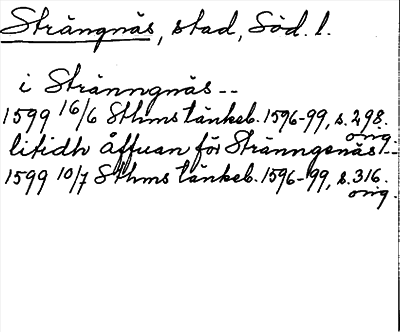 Strängnäs, stad, Söd. l.
i Stränngnäs --
1599 16/6 Sthms tänkeb. 1596-99, s. 298.
orig.
litidh åffuan för Stränngenäs! --
1599 10/7 Sthms tänkeb. 1596-99, s. 316.
orig.